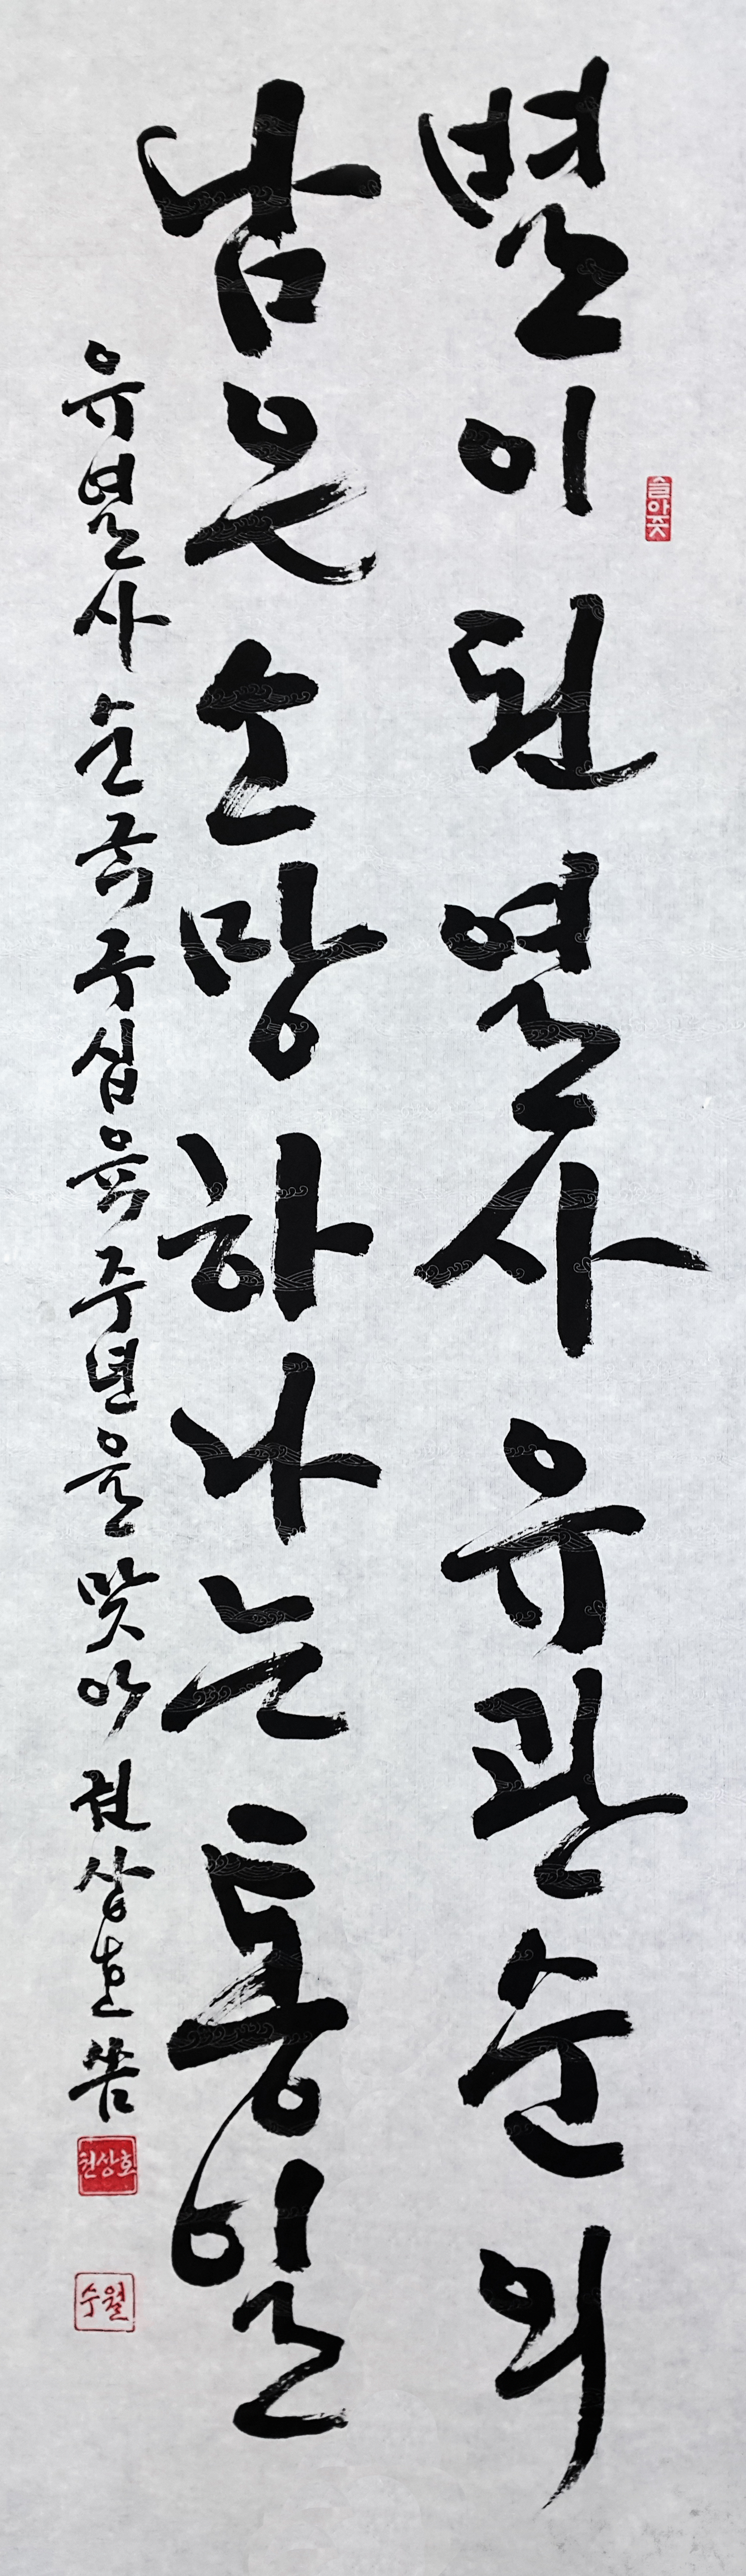 별이 된 열사 유관순의
남은 소망 하나는 통일
유열사 순국 구십육 주년을 맞아 권상호 씀
권상호
수월